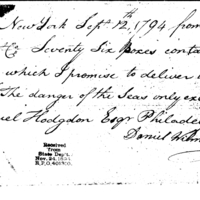 New York Sept 12th, 1794, from
Seventy Six Boxes conta
which I promise to deliver
The danger of the Seas only ex
el Hodgdon Esqr Philade
Daniel
Received
from
State Dep't.
Nov. 24, 18
R.P.O. 40